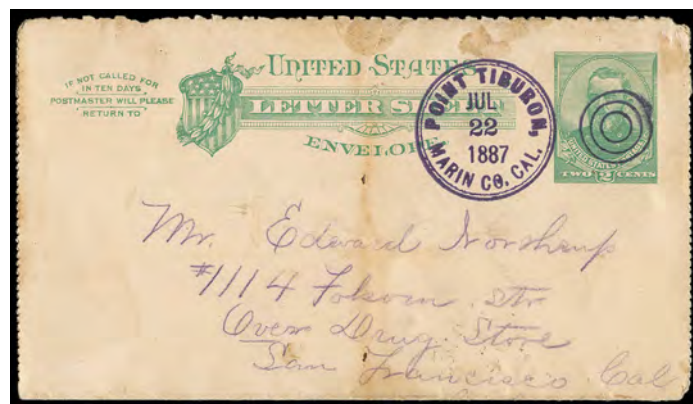 IF NOT CALLED FOR
IN TEN DAYS
POSTMASTER WILL PLEASE
RETURN TO
UNITED STATES
LETTER SHEET
ENVELOPE
POINT TIBURON,
JUL
22
1887
MARIN CO. CAL.
UNITED STATES POSTAGE
TWO 2 CENTS
Mr. Edward
#1114 Folsom Str
Over Drug Store
San Francisco Cal